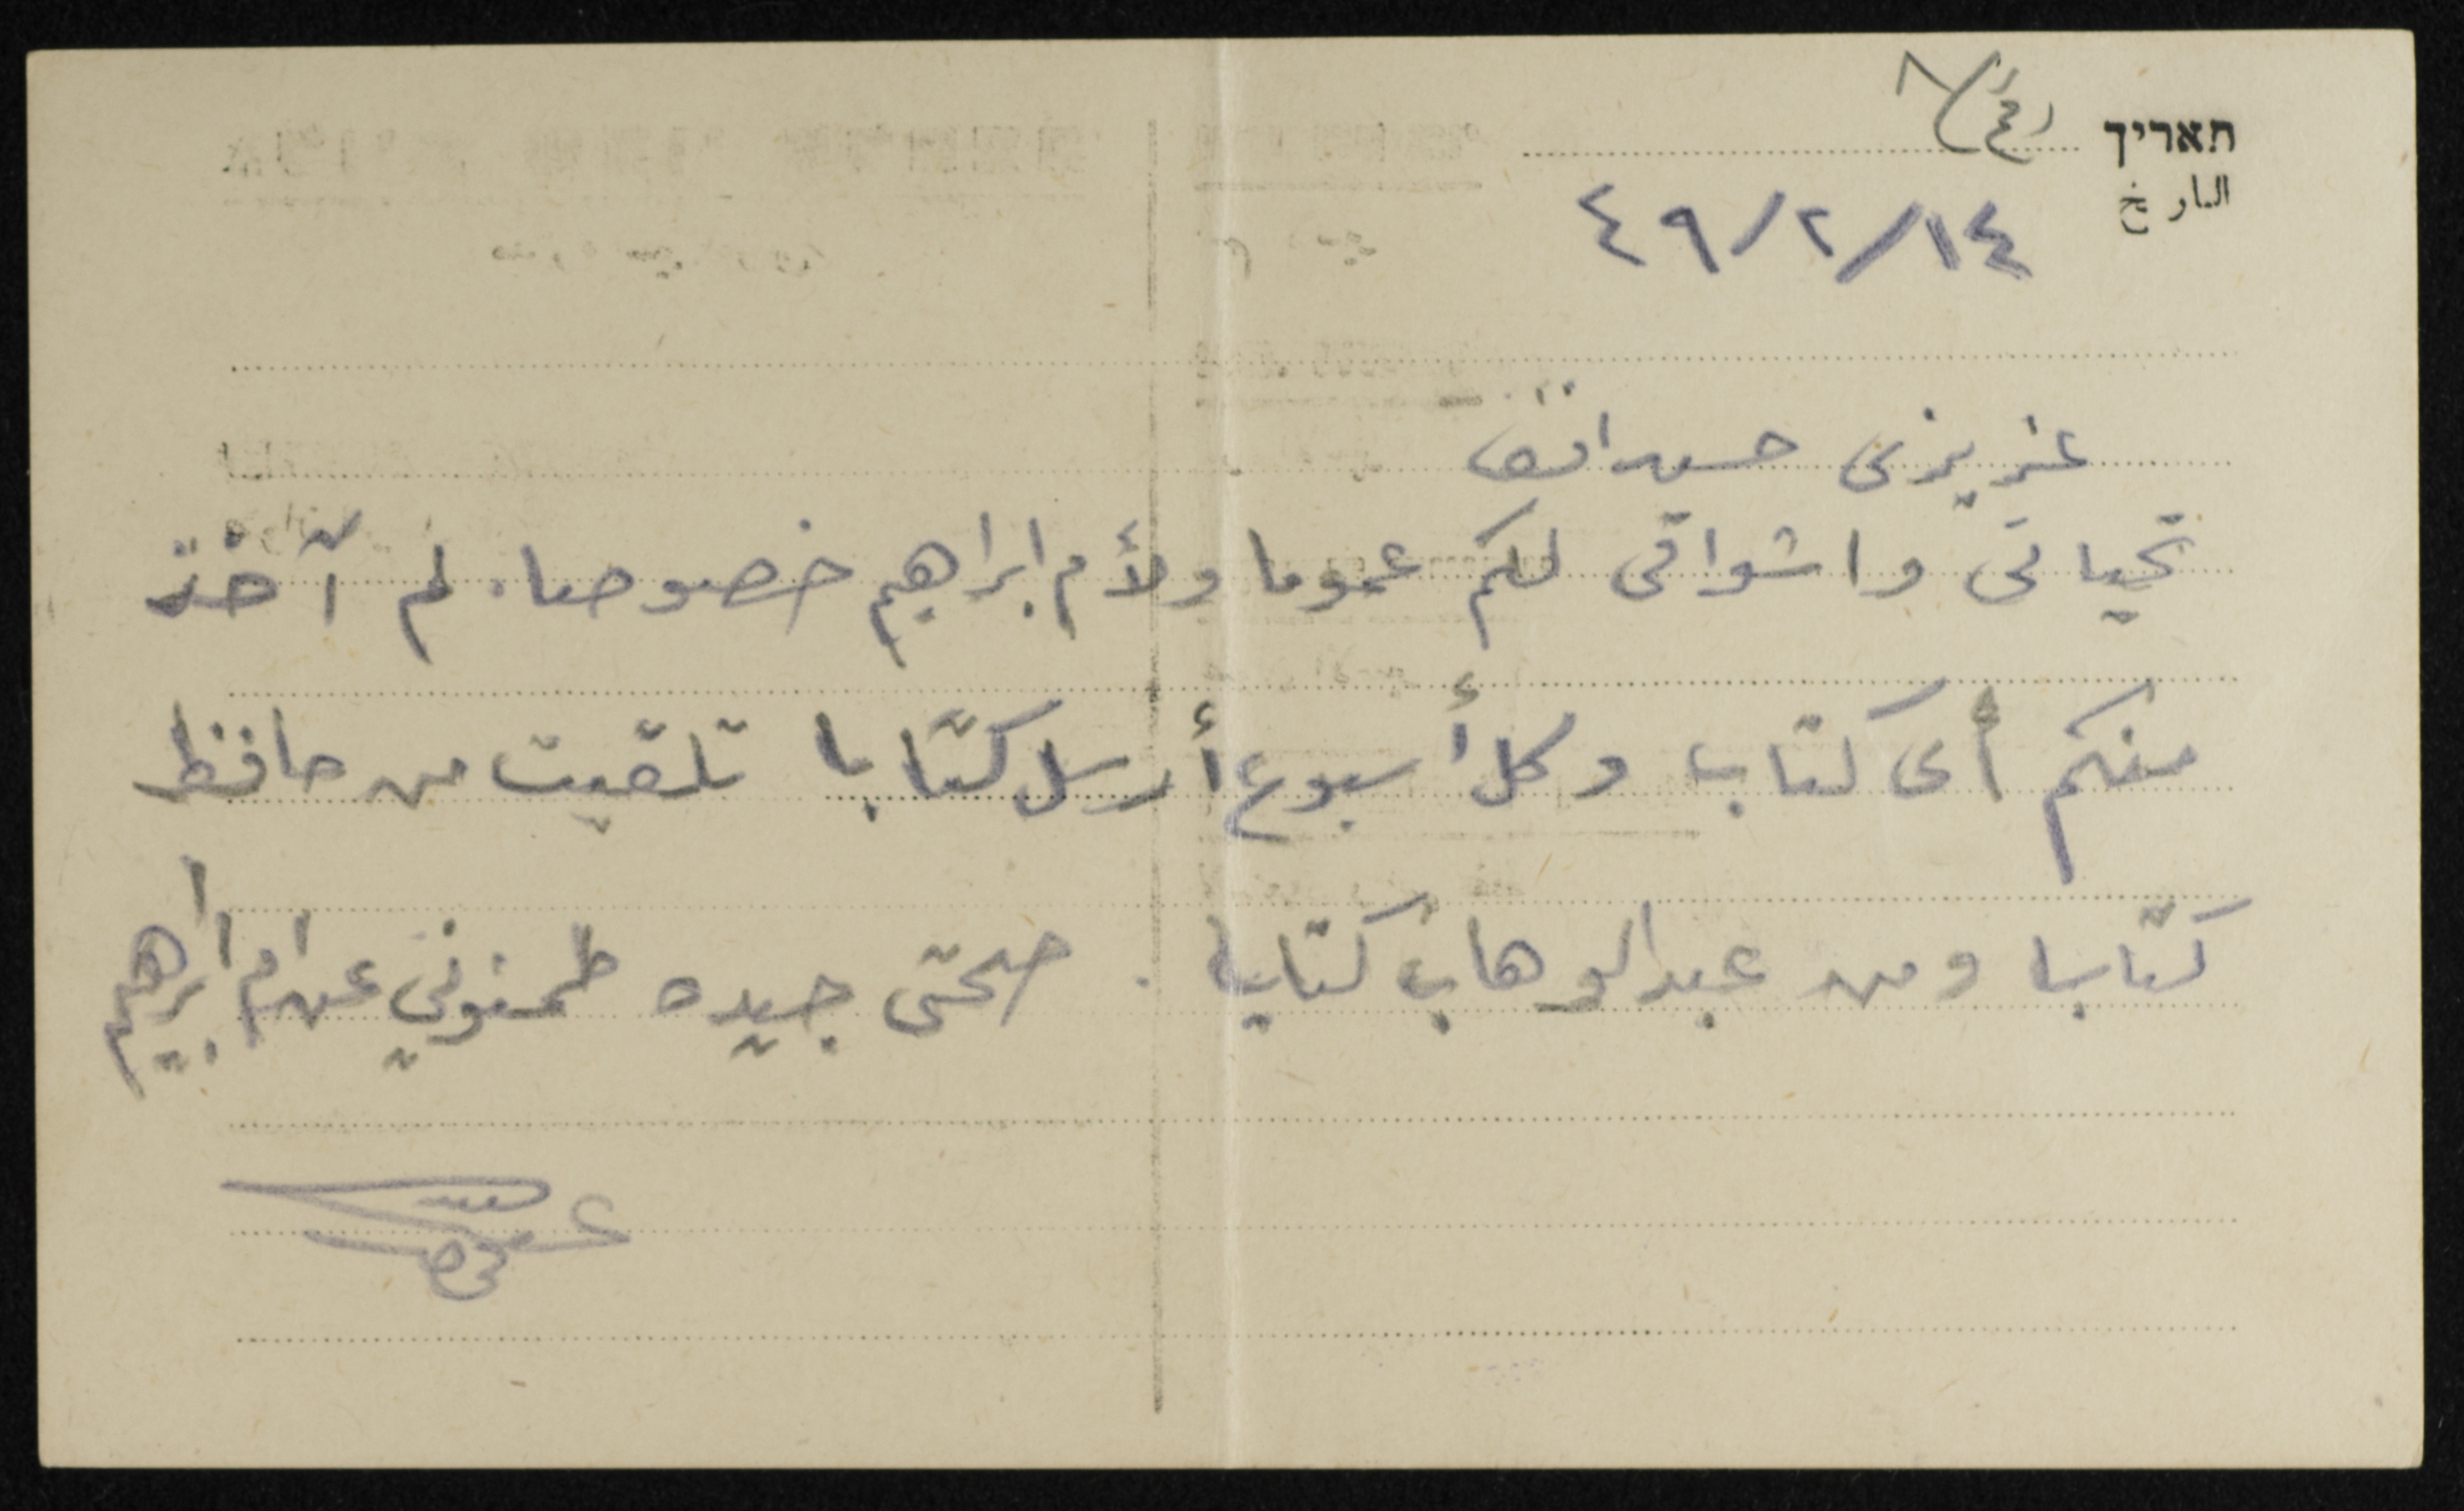 תאריך
التاريخ
١٤/٢/٤٩
عزيزى حسن
تحياتى واشواقى لكم عموما ولأم ابراهيم خصوصا. لم آخذ
منكم أى كتاب وكل أسبوع أرسل كتابا تلقيت من حافظ
كتابا ومن عبد الوهاب كتابا. صحتى جيده طمنونى عن ام ابراهيم